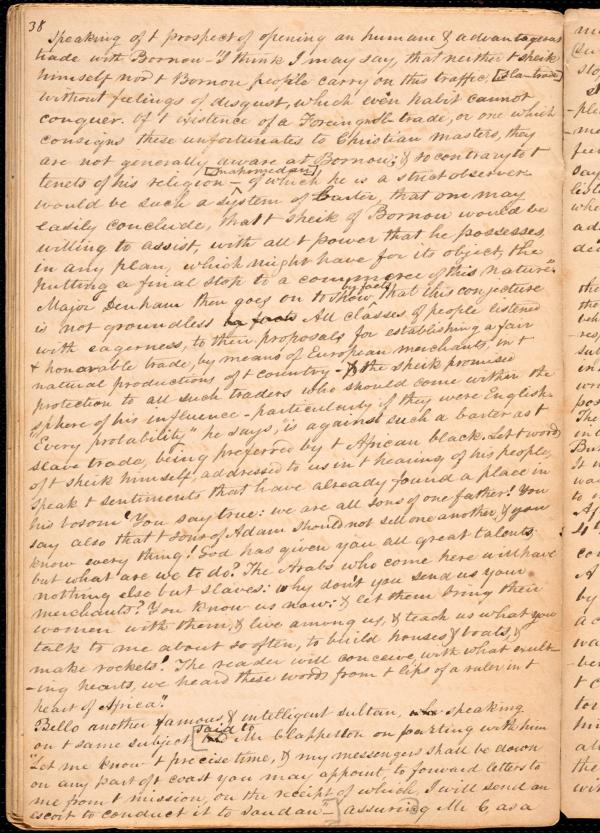 38
Speaking of t prospect of opening an humane & advantageous
trade with Bornou - "I think I may say, that neither t sheik
himself nor t Bornou people carry on this traffic, [sla-trade]
without feelings of disgust, which even habit cannot
conquer. Of t existence of a Foreign slave trade, or one which
consigns these unfortunates to Christian masters, they
are not generally aware at Bornou; & so contrary to t
[mahomedan]
tenets of his religion - of which he is a strict observer
would be such a system of barter, that one may
easily conclude, that t sheik of Bornou would be
willing to assist, with all t power that he possesses,
in any plan, which might have for its object, the
putting a final stop to a commerce of this nature".
by facts
Major Denham then goes on to show, that this conjecture
is not groundless by facts All classes of people listened
with eagerness, to their proposals for establishing a fair
& honorable trade, by means of European merchants, in t
natural productions of t country - & the sheik promised
protection to all such traders who should come within the
sphere of his influence - particularly if they were English.
"Every probability" he says, "is against such a barter as t
slave trade, being preferred by t African black. Let t words
of t sheik himself, addressed to us in t hearing of his people,
speak t sentiments that have already found a place in
his bosom! You say true: we are all sons of one father! You
say also that t sons of Adam should not sell one another, & you
know every thing! God has given you all great talents,
but what are we to do? The Arabs who come here will have
nothing else but slaves: why don't you send us your
merchants? You know us now: & let them bring their
women with them, & live among us, & teach us what you
talk to me about so often, to build houses & boats, &
make rockets! The reader will conceive, with what exult
-ing hearts, we heard these words from t lips of a ruler in t
heart of Africa".
Bello another famous & intelligent sultan, who speaking
said to
on t same subject [ Mr Clapperton on parting with him
"Let me know t precise time, & my messengers shall be down
on any part of t coast you may appoint, to forward letters to
me from t mission, on the receipt of which, I will send an
escort to conduct it to Soudan" -] assuring Mr C as a